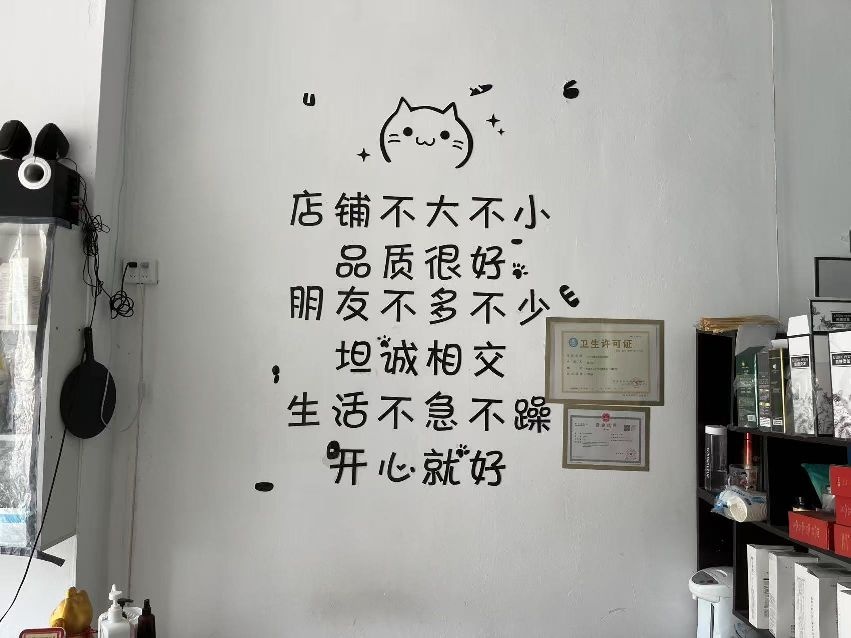 店铺不大不小
品质很好
朋友不多不少
坦诚相交
生活不急不躁
开心就好
卫生许可证